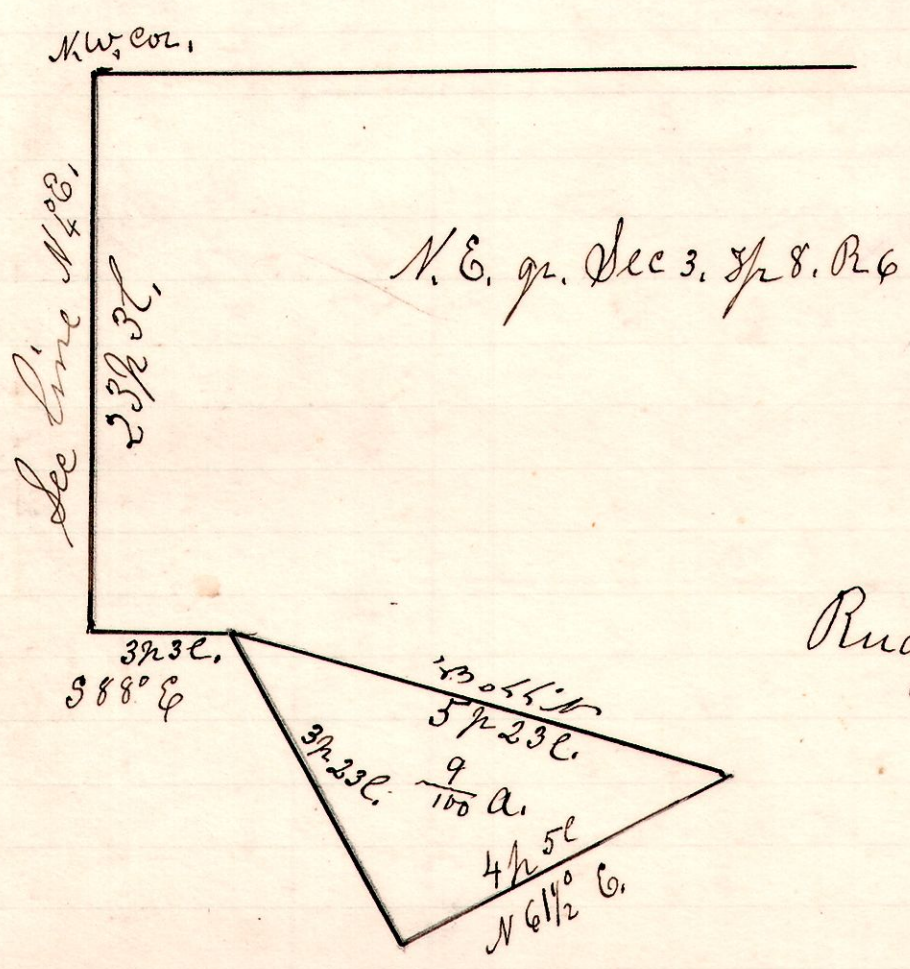 N.W. Cor.
Sec line N 4° E.
23p 3l.
N. E. qr. Sec 3. Tp 8. R 6
3p 3l.
S 88° E
N 77° W.
5p 23l.
3p 23l.
9/100 a.
4p 5l
N 61½° E.